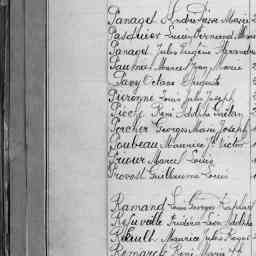 Panaget André Pierre Marie
Pasdeloier Lucien Fernand Marie
Panaget Jules Eugène Alexandre
Pautret Marcel Jean Marie
Pavy Octave Auguste
Peronne Louis Jules Joseph
Pivette René Adolphe Gaëtan
Porcher Georges Marie Joseph
Poubeau Maurice Victor
Prioux Marcel Louis
Provost Guillaume Louis
Ramand Louis Georges
Refuveille Frédéric Léon Adolphe
Renault Maurice Jules
Remarck René Marie